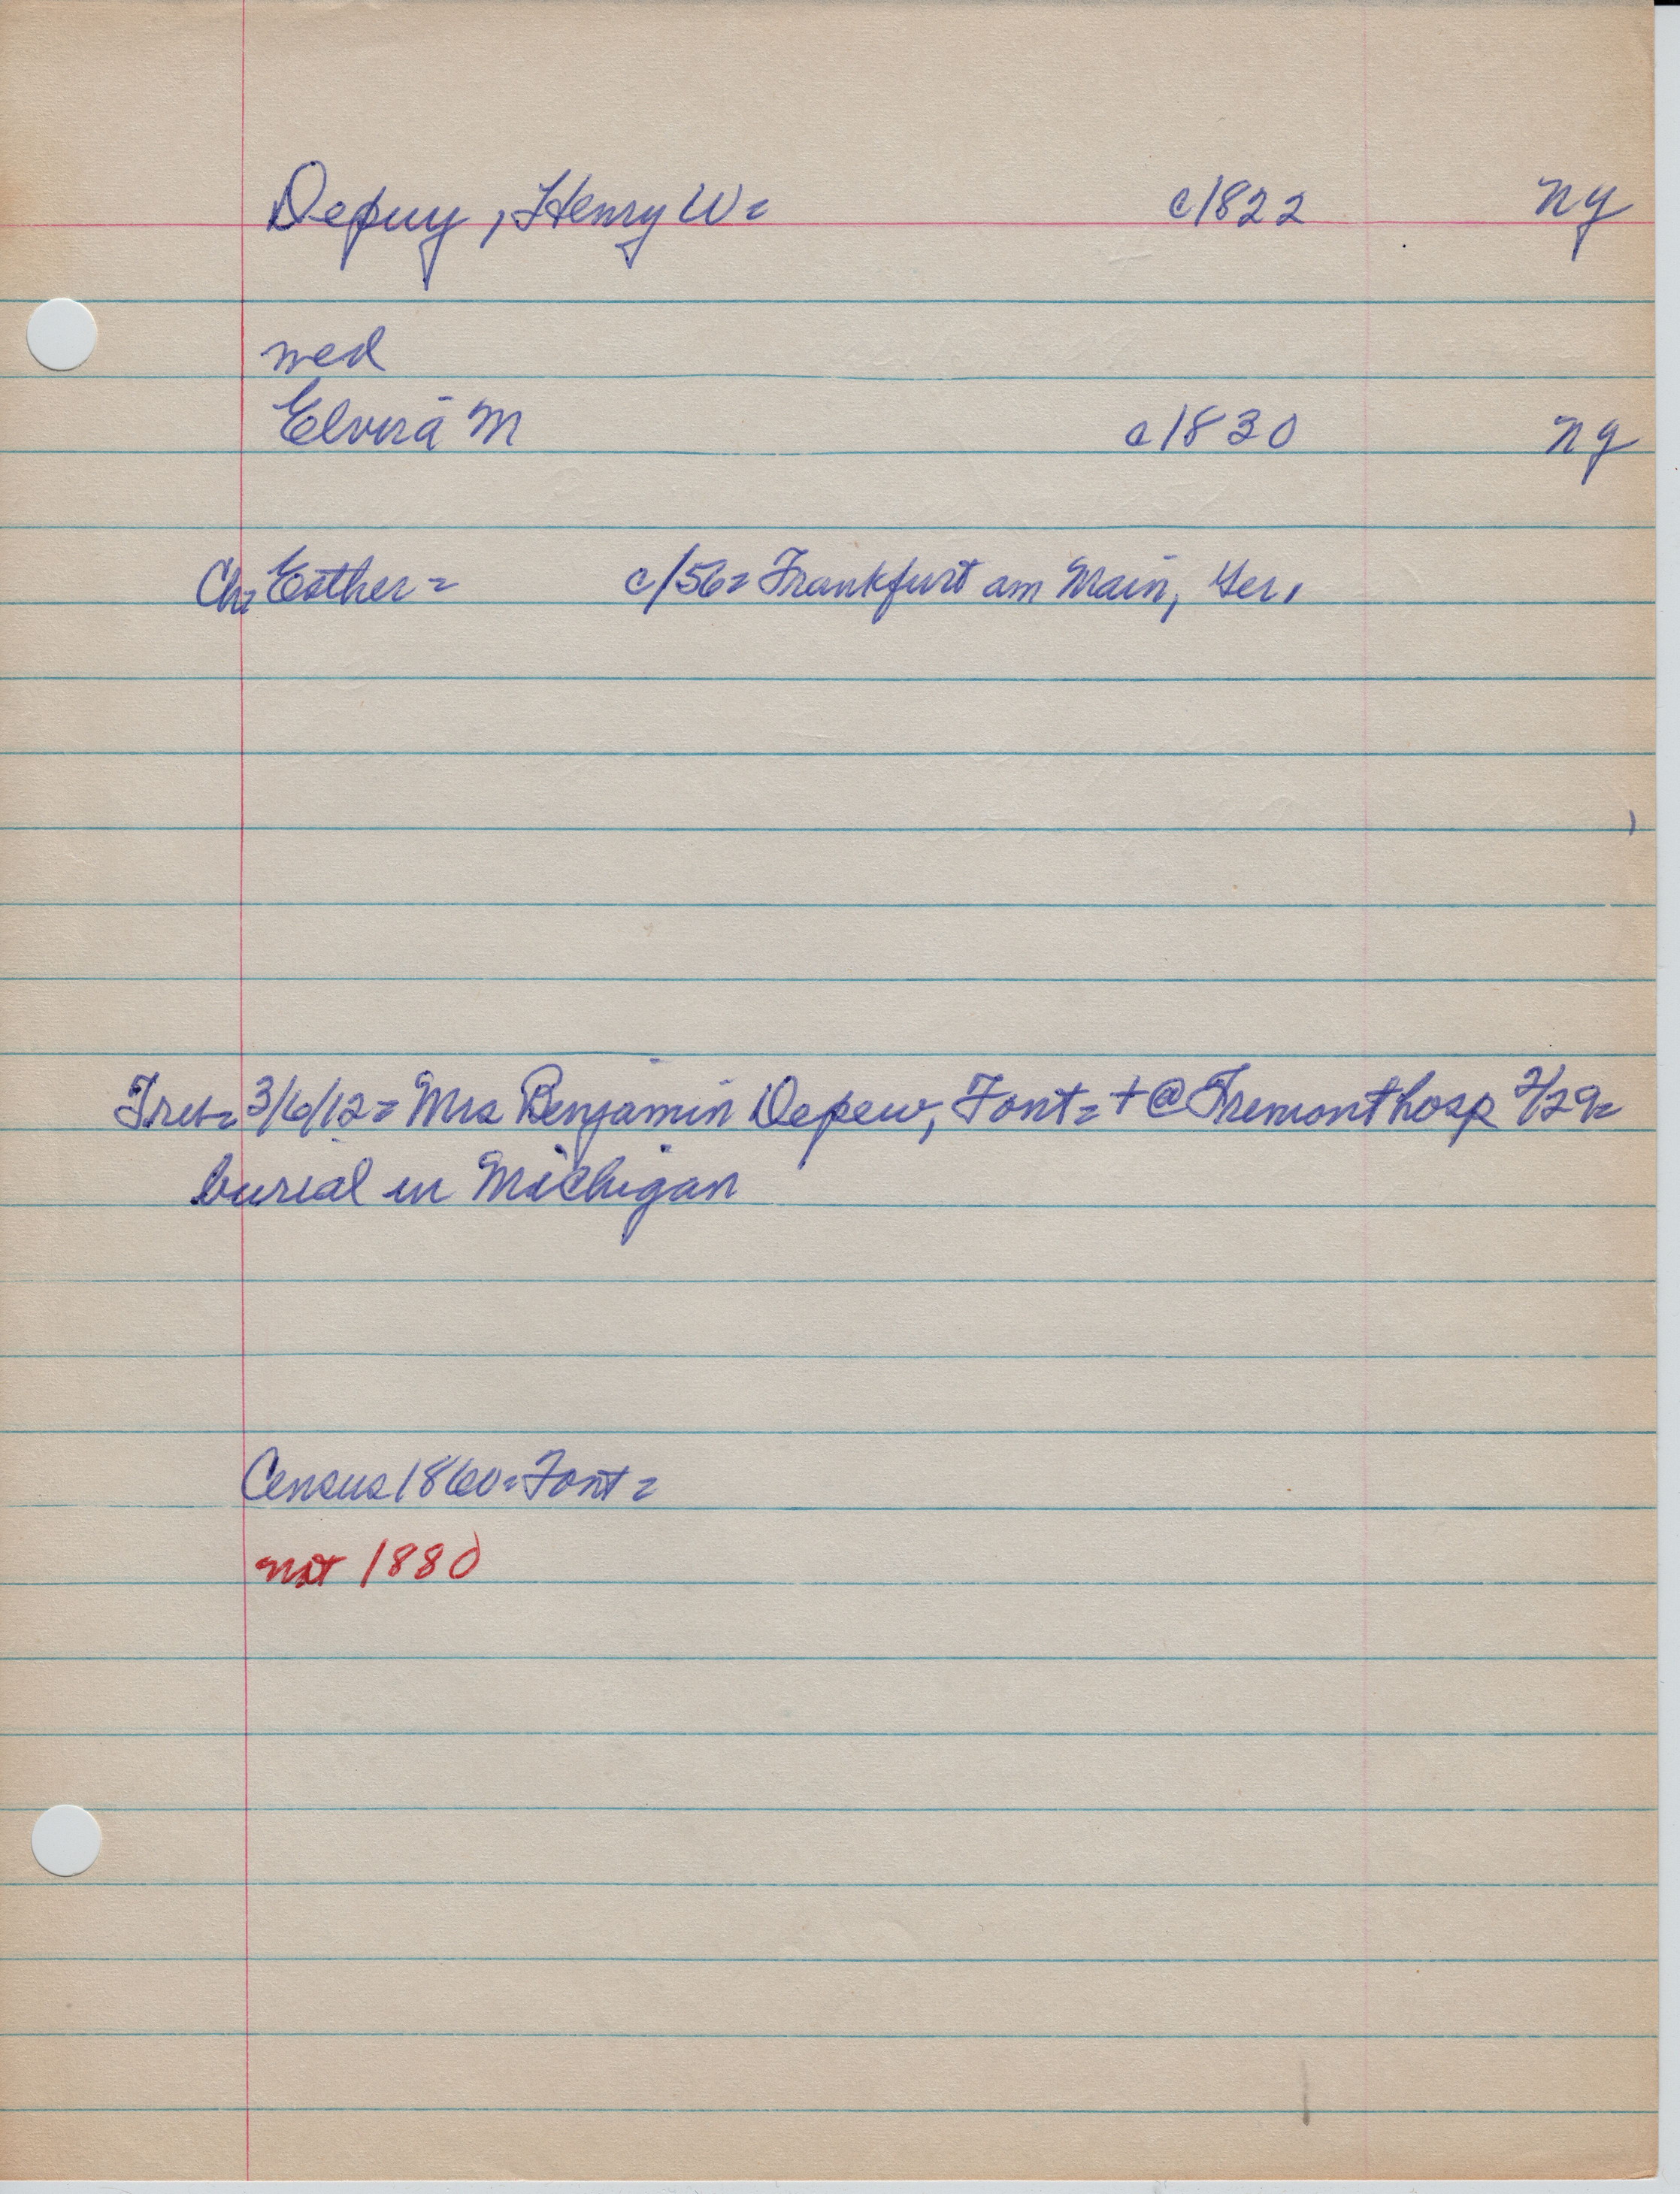 Depuy, Henry W= c/1822 NY
wed
Elvira M c/1830 NY
Ch= Esther= c/56= Frankfurt am Main, Ger.
3/6/12= Mrs Benjamin Depew, Font= + @ Fremont hosp 2/29=
burial in Michigan
Census 1860= Font=
not 1880